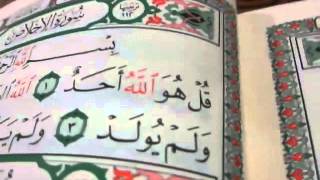 سُورَةُ الإِخْلَاصِ
بِسْمِ اللَّهِ
قُلْ هُوَ اللَّهُ أَحَدٌ ١ اللَّهُ
وَلَمْ يُولَدْ ٣ وَلَمْ